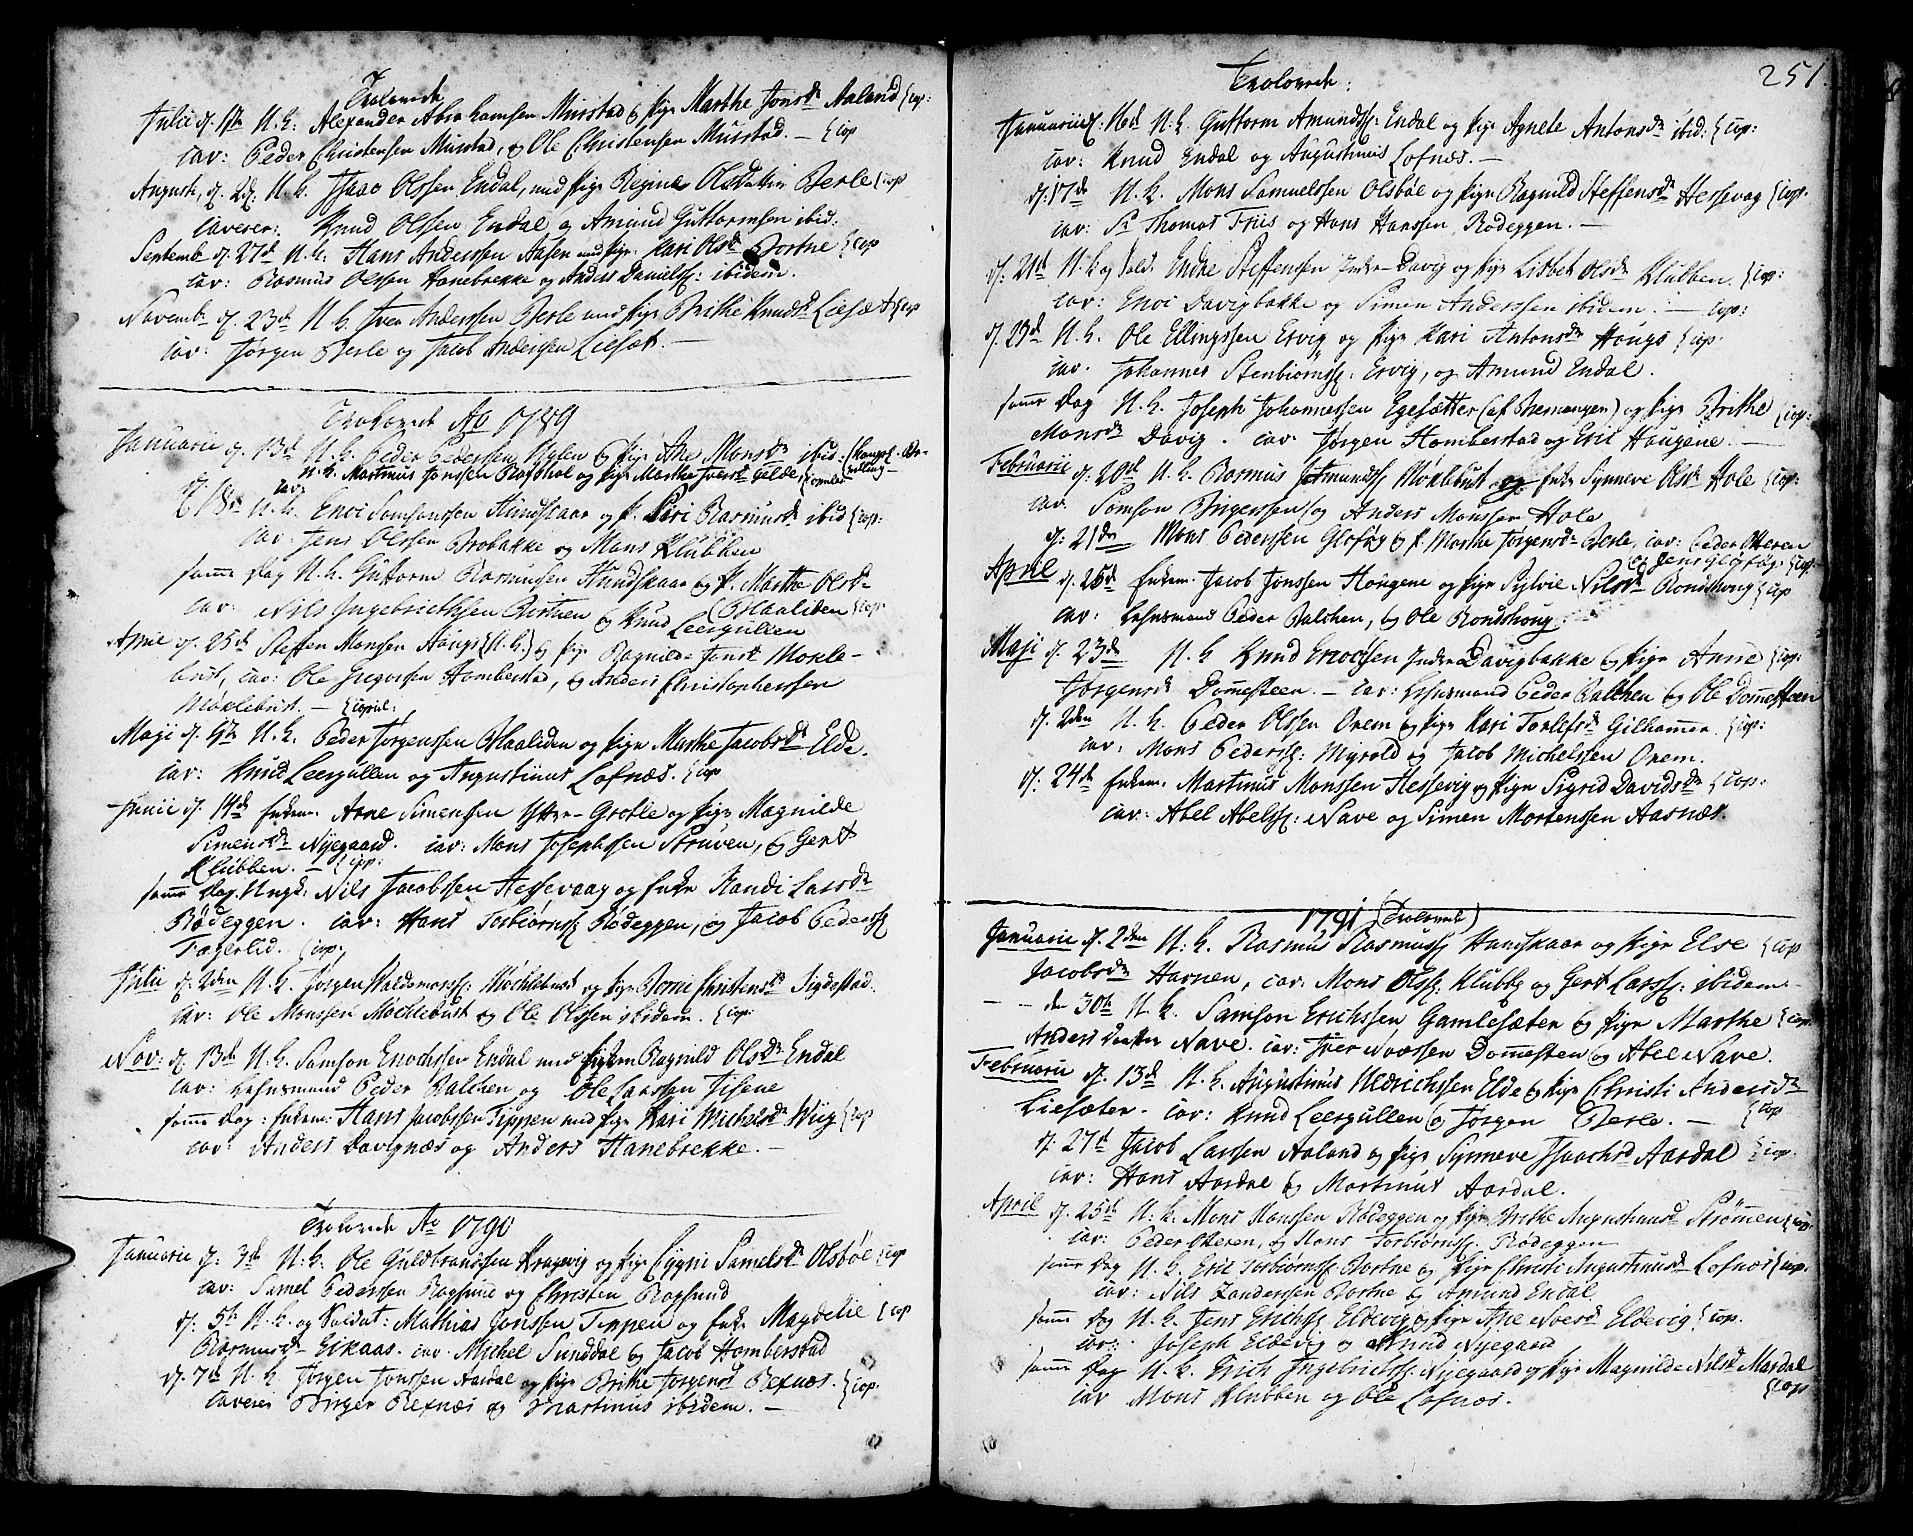 Trolovede
Julii d. 1ste U. K. Alexander Abrahamsen Murstad & Pige Marthe Jonsdr Aaland {cop:
cav: Peder Christensen Murstad, og Ole Christensen Murstad. - {cop
Augusti, d. 2d. U. K. Isaac Olssen Endal, med Pige Regine Olsdatter Berle {cop
caverer: Knud Olssen Endal og Amund Guttormsen ibid:
Septembr d. 27d U. K. Hans Anderssen Aasen med Pige Kari Olsdr Bortne {cop
cav: Rasmus Olssen Hanebrekke og Anders Danielss: ibidem.
Novembr d. 23d U. K. Iver Anderssen Berle med Pige Brithe Knudsdr Liesæt {cop
cav: Jørgen Berle og Jacob Anderssen Liesæt. -
Trolovede Ao 1789
Januarii d. 13d U. K. Peder Pederssen Hylen & Pige Ane Monsdr ibid:
U. K. Martinus Jonssen Rogshol og Pige Marthe Iversdr Gelde,
d. 18d U. K. Enoc Samsonssen Hundskaar og P. Siri Rasmusdr ibid {cop:
cav: Jens Olssen Brobakke og Mons Klubben
samme Dag U. K. Guttorm Rasmussen Hundskaar og P. Marthe Olsdr
cav: Nils Ingebrichtssen Bortnen & Knud Leergullen (Blaaliden {cop:
April d. 25d Steffen Monsen Haugs (U. K.) & Pige Ragnilde Jonsdr Mokle-
bust, cav: Ole Gregorsen Homberstad, & Anders Christophersen
Møklebust. - {copul:
Maji d. 1ste U. K. Peder Jørgenssen Blaaliden og Pige Marthe Jacobsdr Elde.
cav: Knud Leergullen og Augustinus Lofnæs. {cop
Junii d. 14de Enkem. Arne Simenssen Ytre-Grotle og Pige Magnilde
Simensdr Nyegaard. cav: Mons Josephssen Struven, & Gert
Klubben. - {cop:
samme Dag. Ungk: Nils Jacobssen Hessevaag og Enke Randi Larsdr
Rødeggen. cav: Hans Torbiørnss: Rødeggen, og Jacob Pederss:
Fagerlid. {cop:
Julii d. 2den U. K. Jørgen Waldemarss: Møchlebust og Pige Borni Christensdr Sigdestad.
cav: Ole Monssen Mochlebust og Ole Olssen ibidem. {cop:
Nov: d. 13de U. K. Samson Enochssen Endal med Pigen Ragnild Olsdr Endal
cav: Lehnsmand Peder Balchen og Ole Larssen Iisene
samme Dag: Enkem: Hans Jacobssen Tippen med Pige Kari Michelsdr Wiig {cop
cav: Anders Davignæs og Anders Hanebrekke. -
Trolovede Ao 1790
Januarii d. 3d U. K. Ole Guldbrandssen Kragevig og Pige Cygni Samelsdr Olsbøe {cop
cav: Samel Pederssen Rogsund og Christen Rogsund
d. 5te U. K. og Soldat: Mathias Jonssen Tippen og Enke Magdelie {cop
Rasmusdr Eikaas. cav. Michel Sunddal & Jacob Homberstad
d. 7d U. K. Jørgen Jonssen Aardal og Pige Brithe Jørgensdr Rexnæs. {cop.
caverer Birger Rexnæs og Martinus ibidem. -
251.
Trolovede:
Januarii d: 16d U. K. Guttorm Amundss: Endal og Pige Agnete Antonsdr ibid: {cop:
cav: Knud Endal og Augustinus Lofnæs. -
d: 17de U. K. Mons Samuelssen Olsbøe og Pige Ragnild Steffensdr Hessevag {cop.
cav: Sr Thomas Friis og Hans Hanssen Rødeggen. -
d. 21d U. K og Sold. Endre Steffenssen Indre-Davig og Pige Lisbet Olsdr Klubben. {cop:
cav: Enoc Davigbakke og Simen Anderssen ibidem. - cop:
d. 23d U. K. Ole Ellingssen Ervig og Pige Kari Antonsdr Haugs {cop:
cav. Johannes Stenbiornss: Ervig, og Amund Endal.
samme Dag U. K. Joseph Johannessen Egesætter (af Bremangen) og Pige Brithe {cop:
Monsdr Davig. cav. Jørgen Homberstad og Eric Haugene. -
Februarii d. 20d U. K. Rasmus Jetmundss: Møklebust og Enke Synneve Olsdr Hole {cop:
cav Samson Birgerssen & Anders Monssen Hole
d: 21de Mons Pederssen Gloføg & P. Marthe Jørgensdr Berle, cav: Peder Otteren
& Jens Gloføg. {cop:
April d. 25d Enkem. Jacob Jonssen Haugene og Pige Sylvie Nilsdr Rondehoug {cop
cav: Lehnsmand Peder Balchen, & Ole Rondehoug.
Maji d. 23d U. K Knud Enochssen Indre Davigbakke & Pige Anne {cop:
Jørgensdr Domesteen. - cav: Lehnsmand Peder Balchen & Ole Domesteen
d. 2den U. K. Peder Olssen Orem & Pige Kari Torlefsdr Gilhammer. {cop:
cav: Mons Pederss: Myrold og Jacob Michelssen Orem.
d: 24de Enkem. Martinus Monssen Hessevig & Pige Sigrid Davidsdr {cop:
cav: Abel Abelss: Nave og Simen Mortenssen Aasnæs.
1791 (Trolovede)
Januarii d. 2den U: K. Rasmus Rasmuss: Hundskaar og Pige Else {cop
Jacobsdr Havnen, cav: Mons Olss: Klubbe og Gert Larss: ibidem. -
- - den 30te U. K. Samson Erichssen Gamlesæter & Pige Marthe {cop:
Anders Datter Nave. cav: Iver Noessen Domesten & Abel Nave.
Februarii d. 13d U. K. Augustinus Uldrichssen Elde & Pige Christi Andersdr
Liesæter. cav: Knud Leergullen & Jørgen Berle. - {cop
d. 27d Jacob Larssen Aaland og Pige Synneve Isaachsdr Aardal {cop.
cav: Hans Aardal & Martinus Aardal.
April d. 25d U. K. Mons Hanssen Rødeggen og Pige Brithe Augustinusdr Strömmen {cop
cav: Peder Otteren, & Mons Torbiørnss: Rødeggen
samme Dag U. K. Eric Torbiørnss: Bortne & Pige Christi Augustinusdr Lofnæs {cop.
cav: Nils Zanderssen Bortne & Amund Endal
samme Dag U. K. Jens Erichss: Eldevig & Pige Ane Noesdr Eldevig {cop.
cav: Joseph Eldevig og Knud Nyegaard
samme Dag U. K. Erich Ingebrictss: Nyegaard & Pige Magnilde Nilsdr Mardal
cav Mons Klubben og Ole Lofnæs. {cop